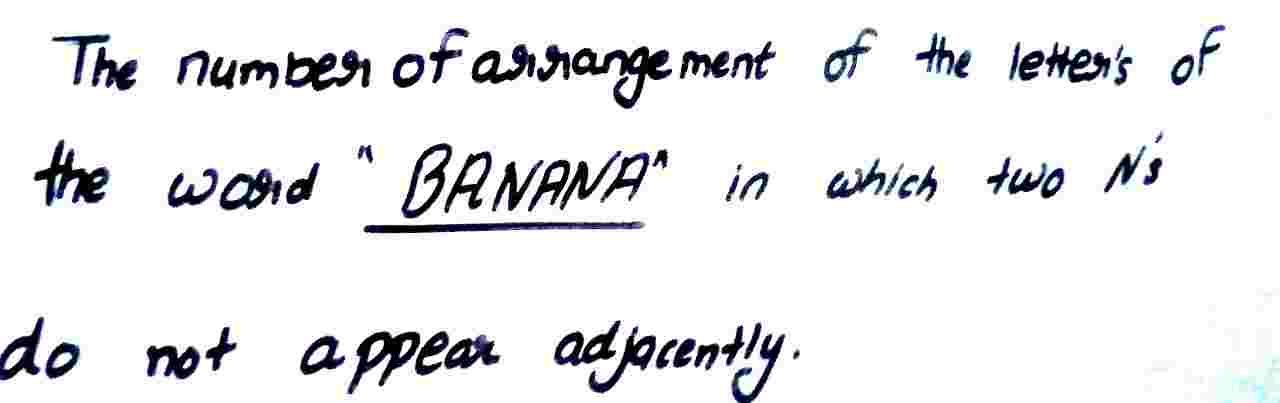 The number of arrangement of the letter's of
the word "BANANA" in which two N's
do not appear adjacently.